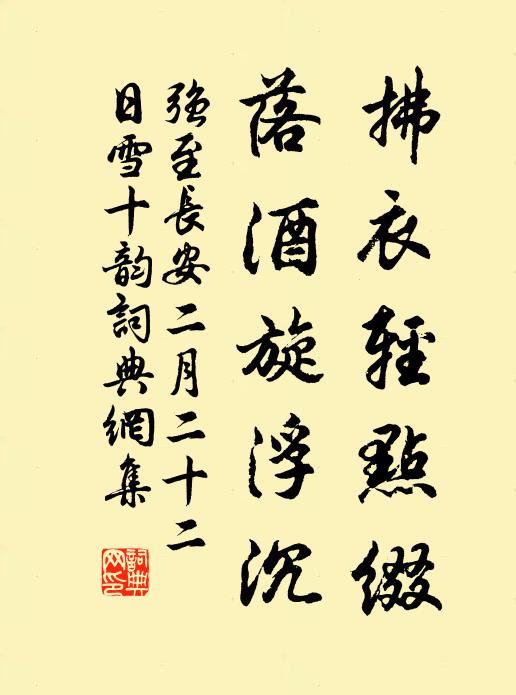 拂衣輕點綴
落酒旋浮沉
強至長安二月二十二
日雪十韵詞典網集
詞典網印